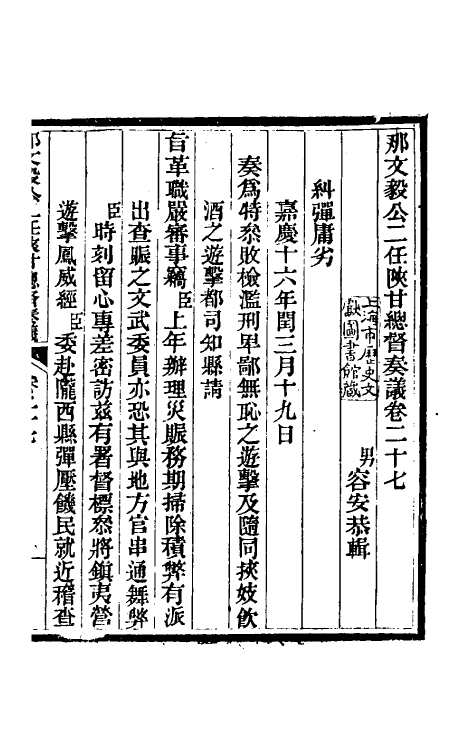 那文毅公二任陝甘總督奏議卷二十七
男容安恭輯
上海市歷史文
獻圖書館藏
糾彈庸劣
嘉慶十六年閏三月十九日
奏爲特叅敗檢濫刑卑鄙無恥之遊擊及隨同挾妓飲
酒之遊擊都司知縣請
旨革職嚴審事竊臣上年辦理災賑務期掃除積弊有派
出查賑之文武委員亦恐其與地方官串通舞弊
臣時刻留心專差密訪茲有署督標叅將鎮夷營
遊擊鳳威經臣委赴隴西縣彈壓饑民就近稽查
那文毅公二任陝甘總督奏議
卷二十七
一